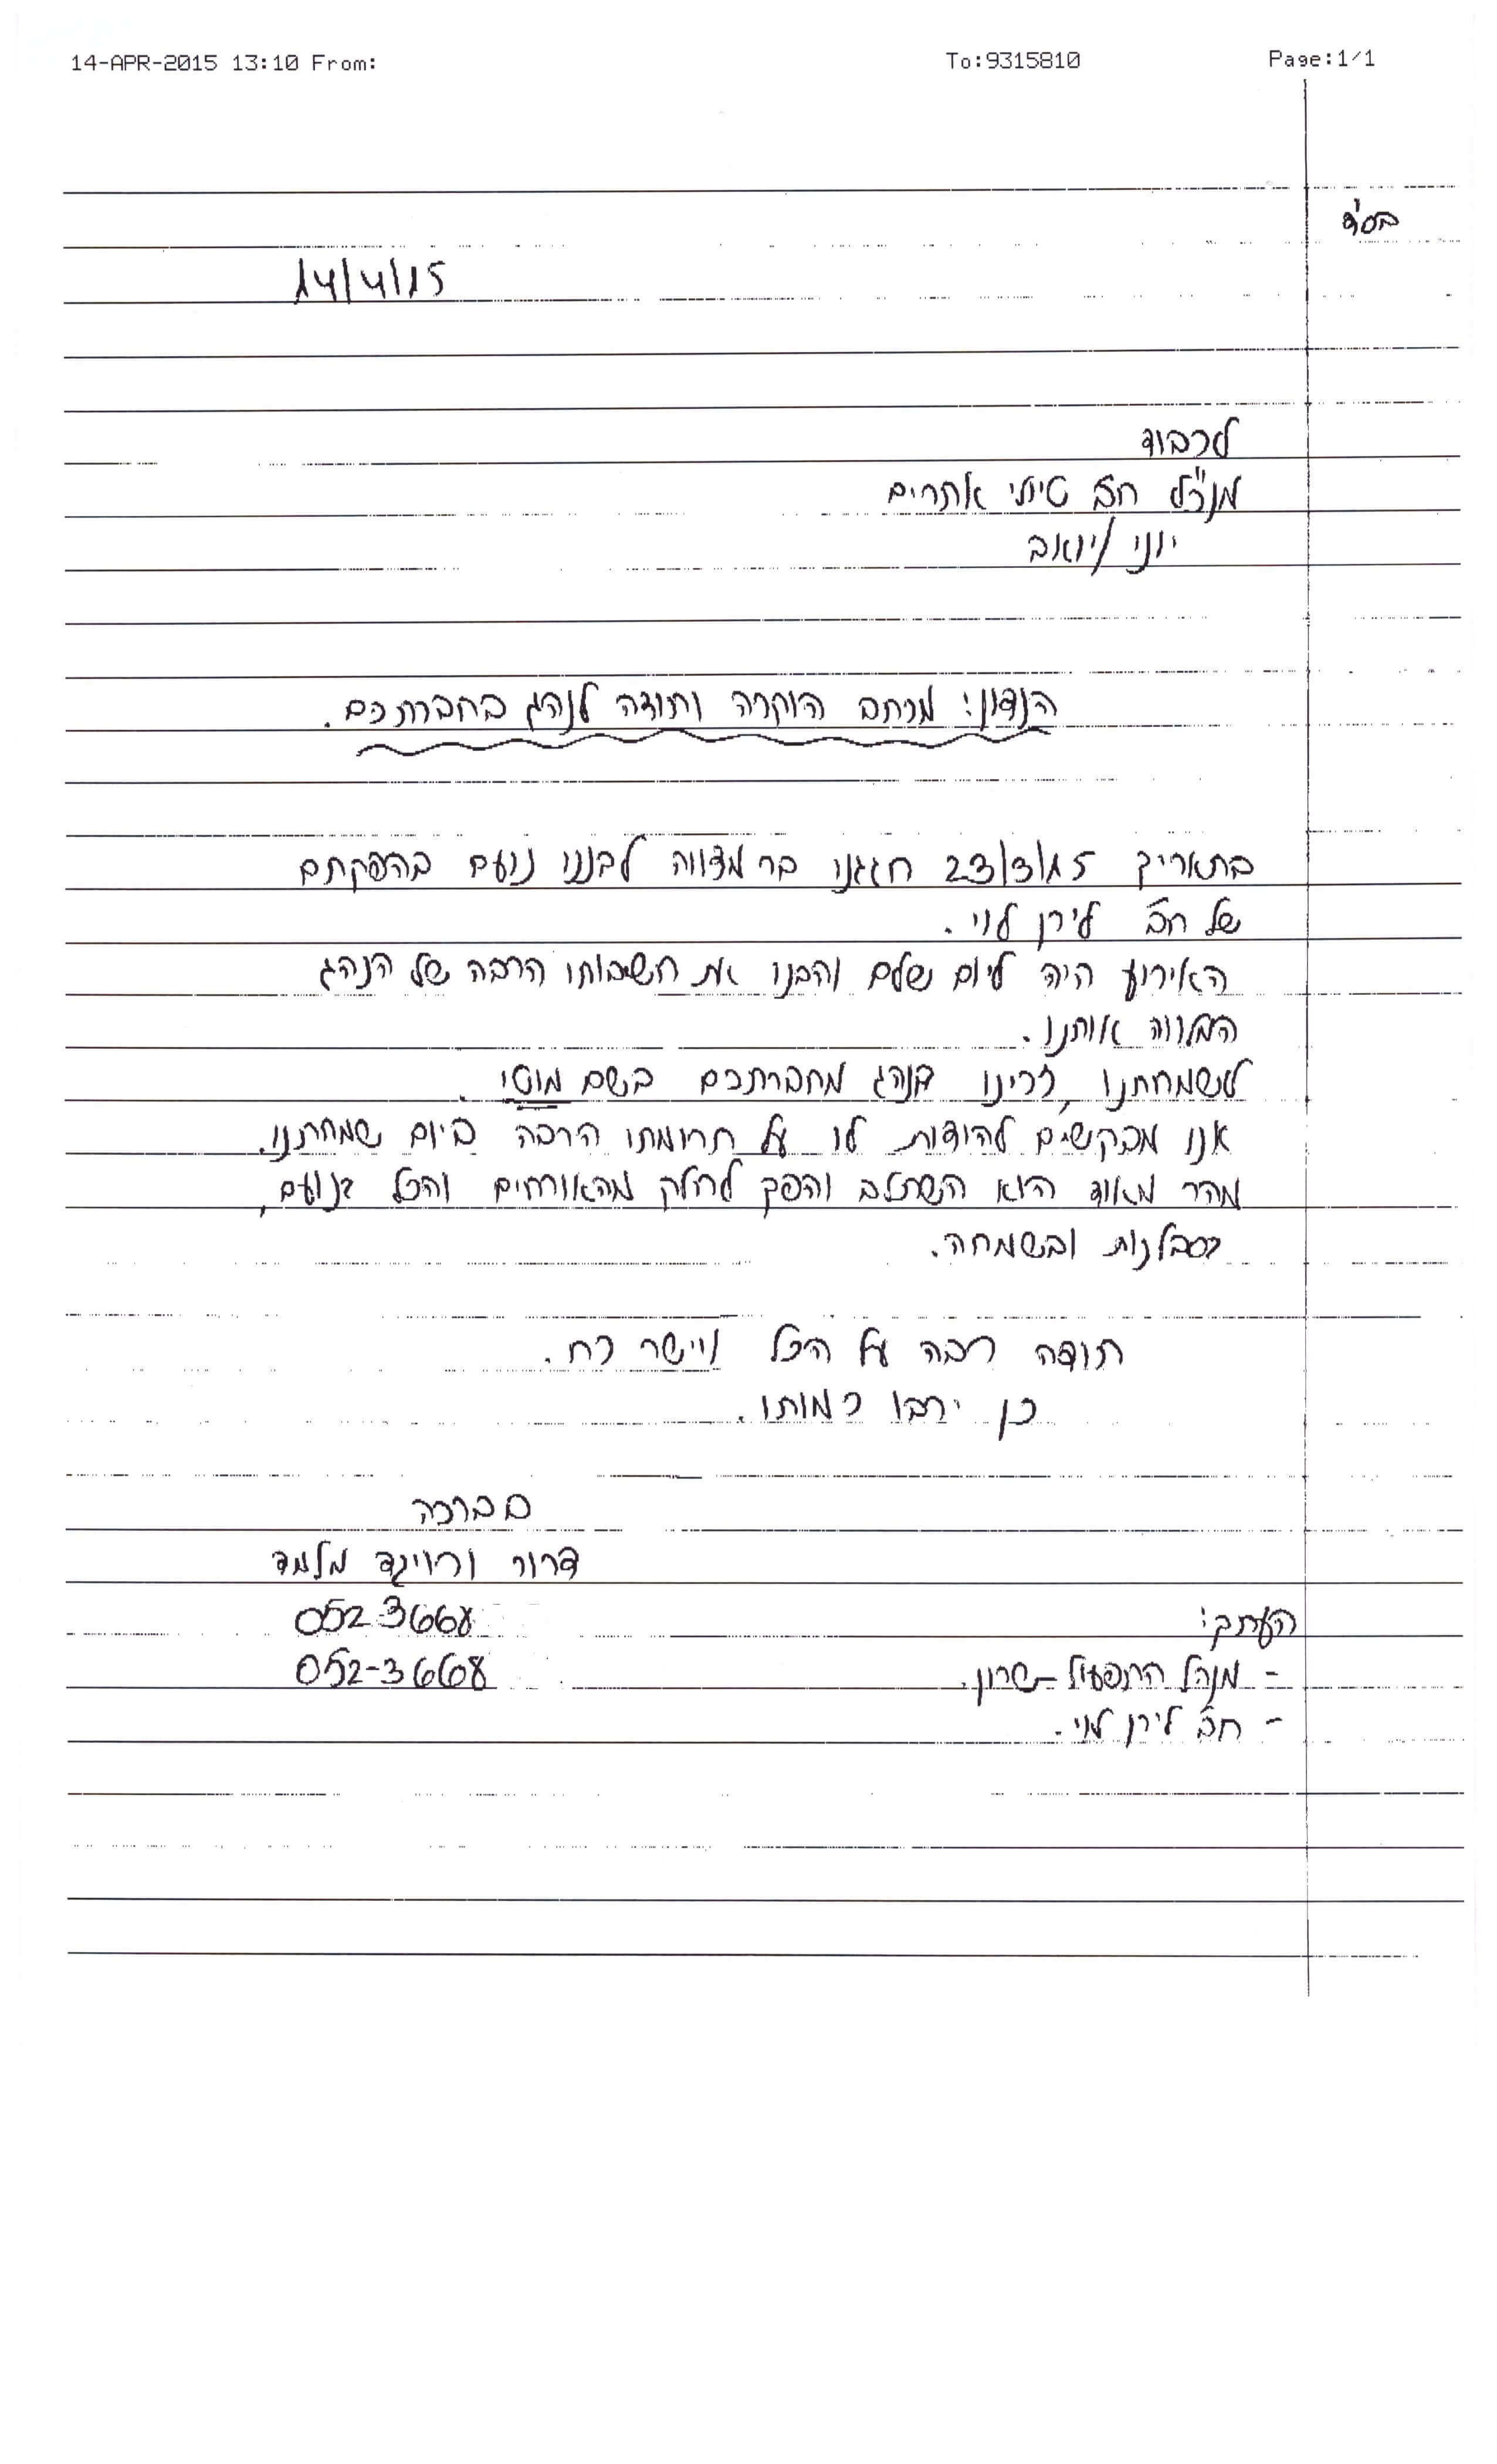 14-APR-2015 13:10 From: To:9315810 Page:1/1
בס"ד
14/4/15
לכבוד
מנכ"ל חב' טיולי אתרים
יוני / יואב
הנדון: מכתב הוקרה ותודה לנהג בחברתכם.
בתאריך 23/3/15 חגגנו בר מצווה לבננו נועם בהפקתם
של חב' לירן לוי.
האירוע היה ליום שלם והבנו את חשיבותו הרבה של הנהג
המלווה אותנו.
לשמחתנו, זכינו בנהג מחברתכם בשם מוטי.
אנו מבקשים להודות לו על תרומתו הרבה ביום שמחתנו.
מהר מאוד הוא השתלב והפך לחלק מהאורחים והכל בנועם,
בסבלנות ובשמחה.
תודה רבה על הכל ויישר כח.
כן ירבו כמותו.
בברכה
דרור ורוויטל מלמד
052-3668
052-3668
העתק:
- מנהל התפעול - שרון.
- חב' לירן לוי.